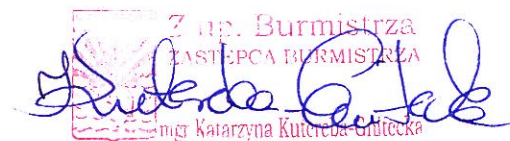 Z up. Burmistrza
ZASTĘPCA BURMISTRZA
mgr Katarzyna Kutereba-Gnutecka